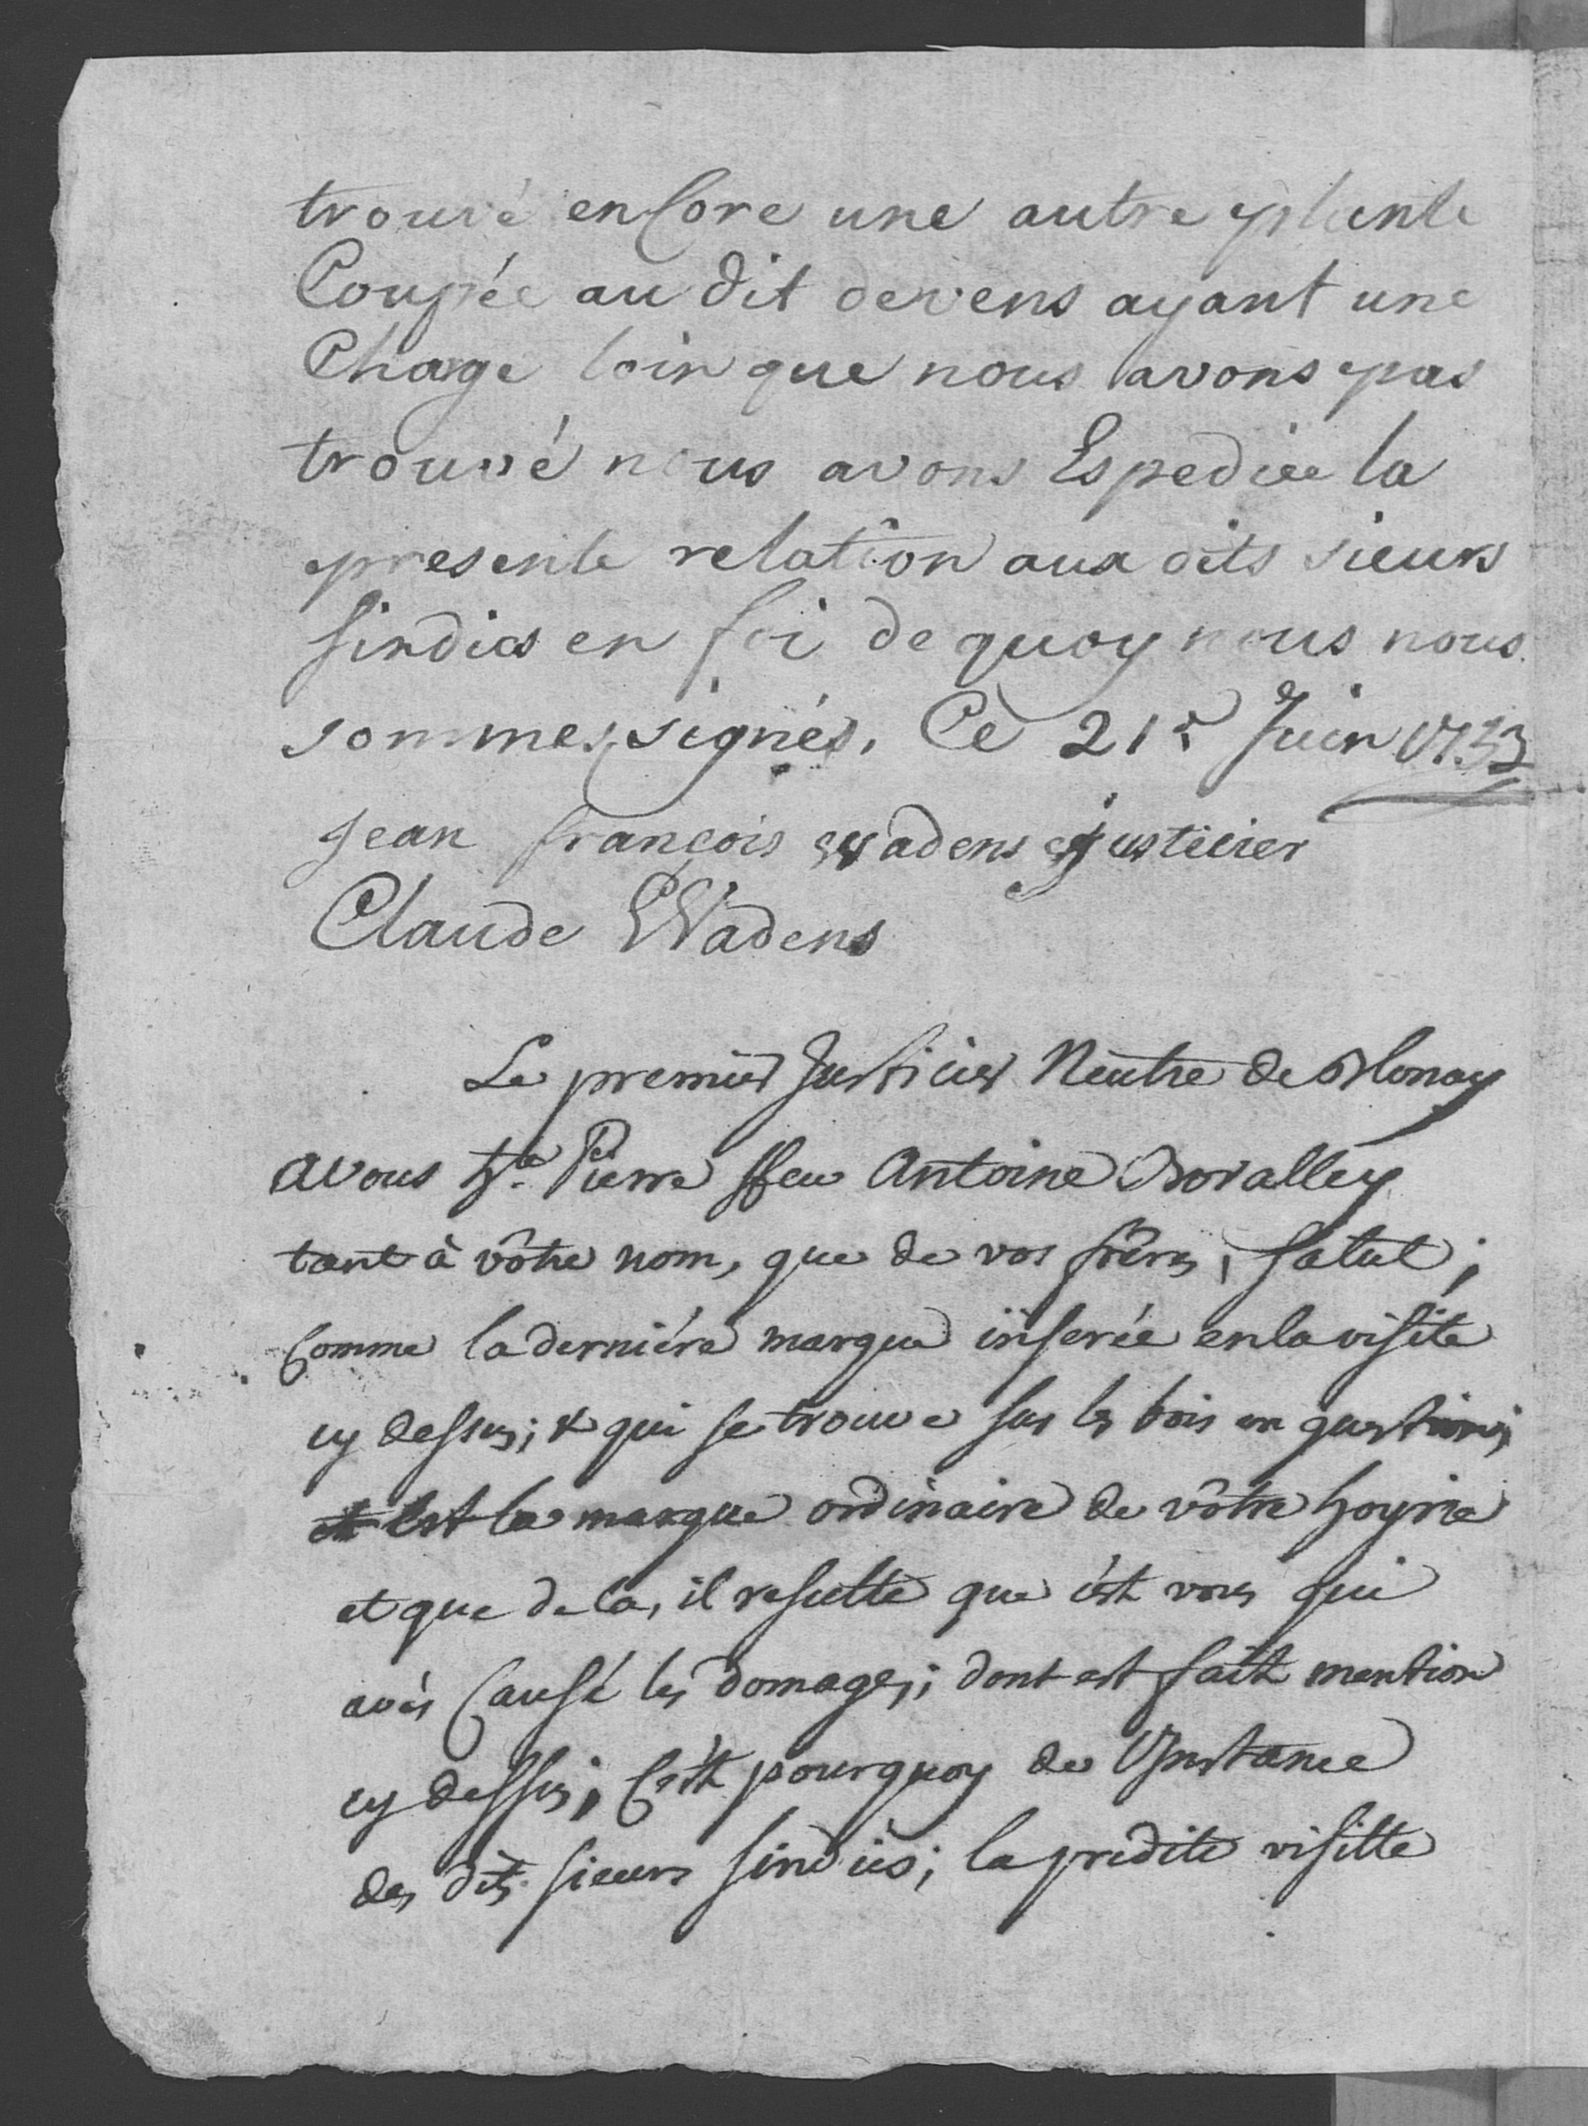 trouvé encore une autre plante
Coupée au dit devens ayant une
Charge loin que nous avons pas
trouvé nous avons Espediée la
presente relation aux dits sieurs
sindics en foi de quoy nous nous
sommes signés, Ce 21e Juin 1753
Jean françois Wadens justicier
Claude Wadens
Le premier Justicier Neutre de Blonay
a vous Pierre ffeu Antoine Bovalley
tant à vôtre nom, que de vos frêres, salut;
Comme la derniére marque inserée en la visite
cy dessus; & qui se trouve sur les bois en question;
est la marque ordinaire de vôtre hoyrie
et que de la, il resulte que c'est vous qui
avés Causé les domages; dont est fait mention
cy dessus; C'est pourquoy de l'Instance
des dits sieurs sindics; la predite visitte